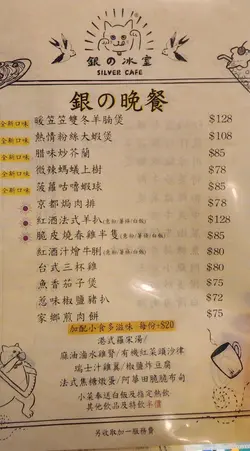 銀の冰室
SILVER CAFE
銀の晚餐
全新口味 暖笠笠雙冬羊腩煲 $128
全新口味 熱情粉絲大蝦煲 $108
全新口味 腊味炒芥蘭 $85
全新口味 微辣螞蟻上樹 $78
全新口味 菠蘿咕嚕蝦球 $85
京都焗肉排 $78
紅酒法式羊扒(意粉/薯條/白飯) $128
脆皮燒春雞半隻(意粉/薯條/白飯) $85
紅酒汁燴牛脷(意粉/薯條/白飯) $80
台式三杯雞 $80
魚香茄子煲 $75
惹味椒鹽豬扒 $72
家鄉煎肉餅 $70
加配小食多滋味 每份+$20
港式羅宋湯/
麻油滷水雞腎/有機紅菜頭沙律
瑞士汁雞翼/椒鹽炸豆腐
法式焦糖燉蛋/阿華田脆脆布甸
小菜奉送白飯及指定熱飲
其他飲品及特飲半價
另收取加一服務費